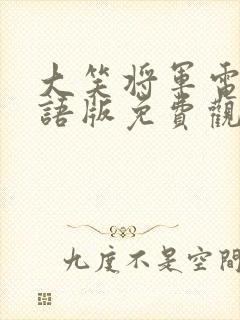 大笑將軍電
語版免費觀
九度不是空間